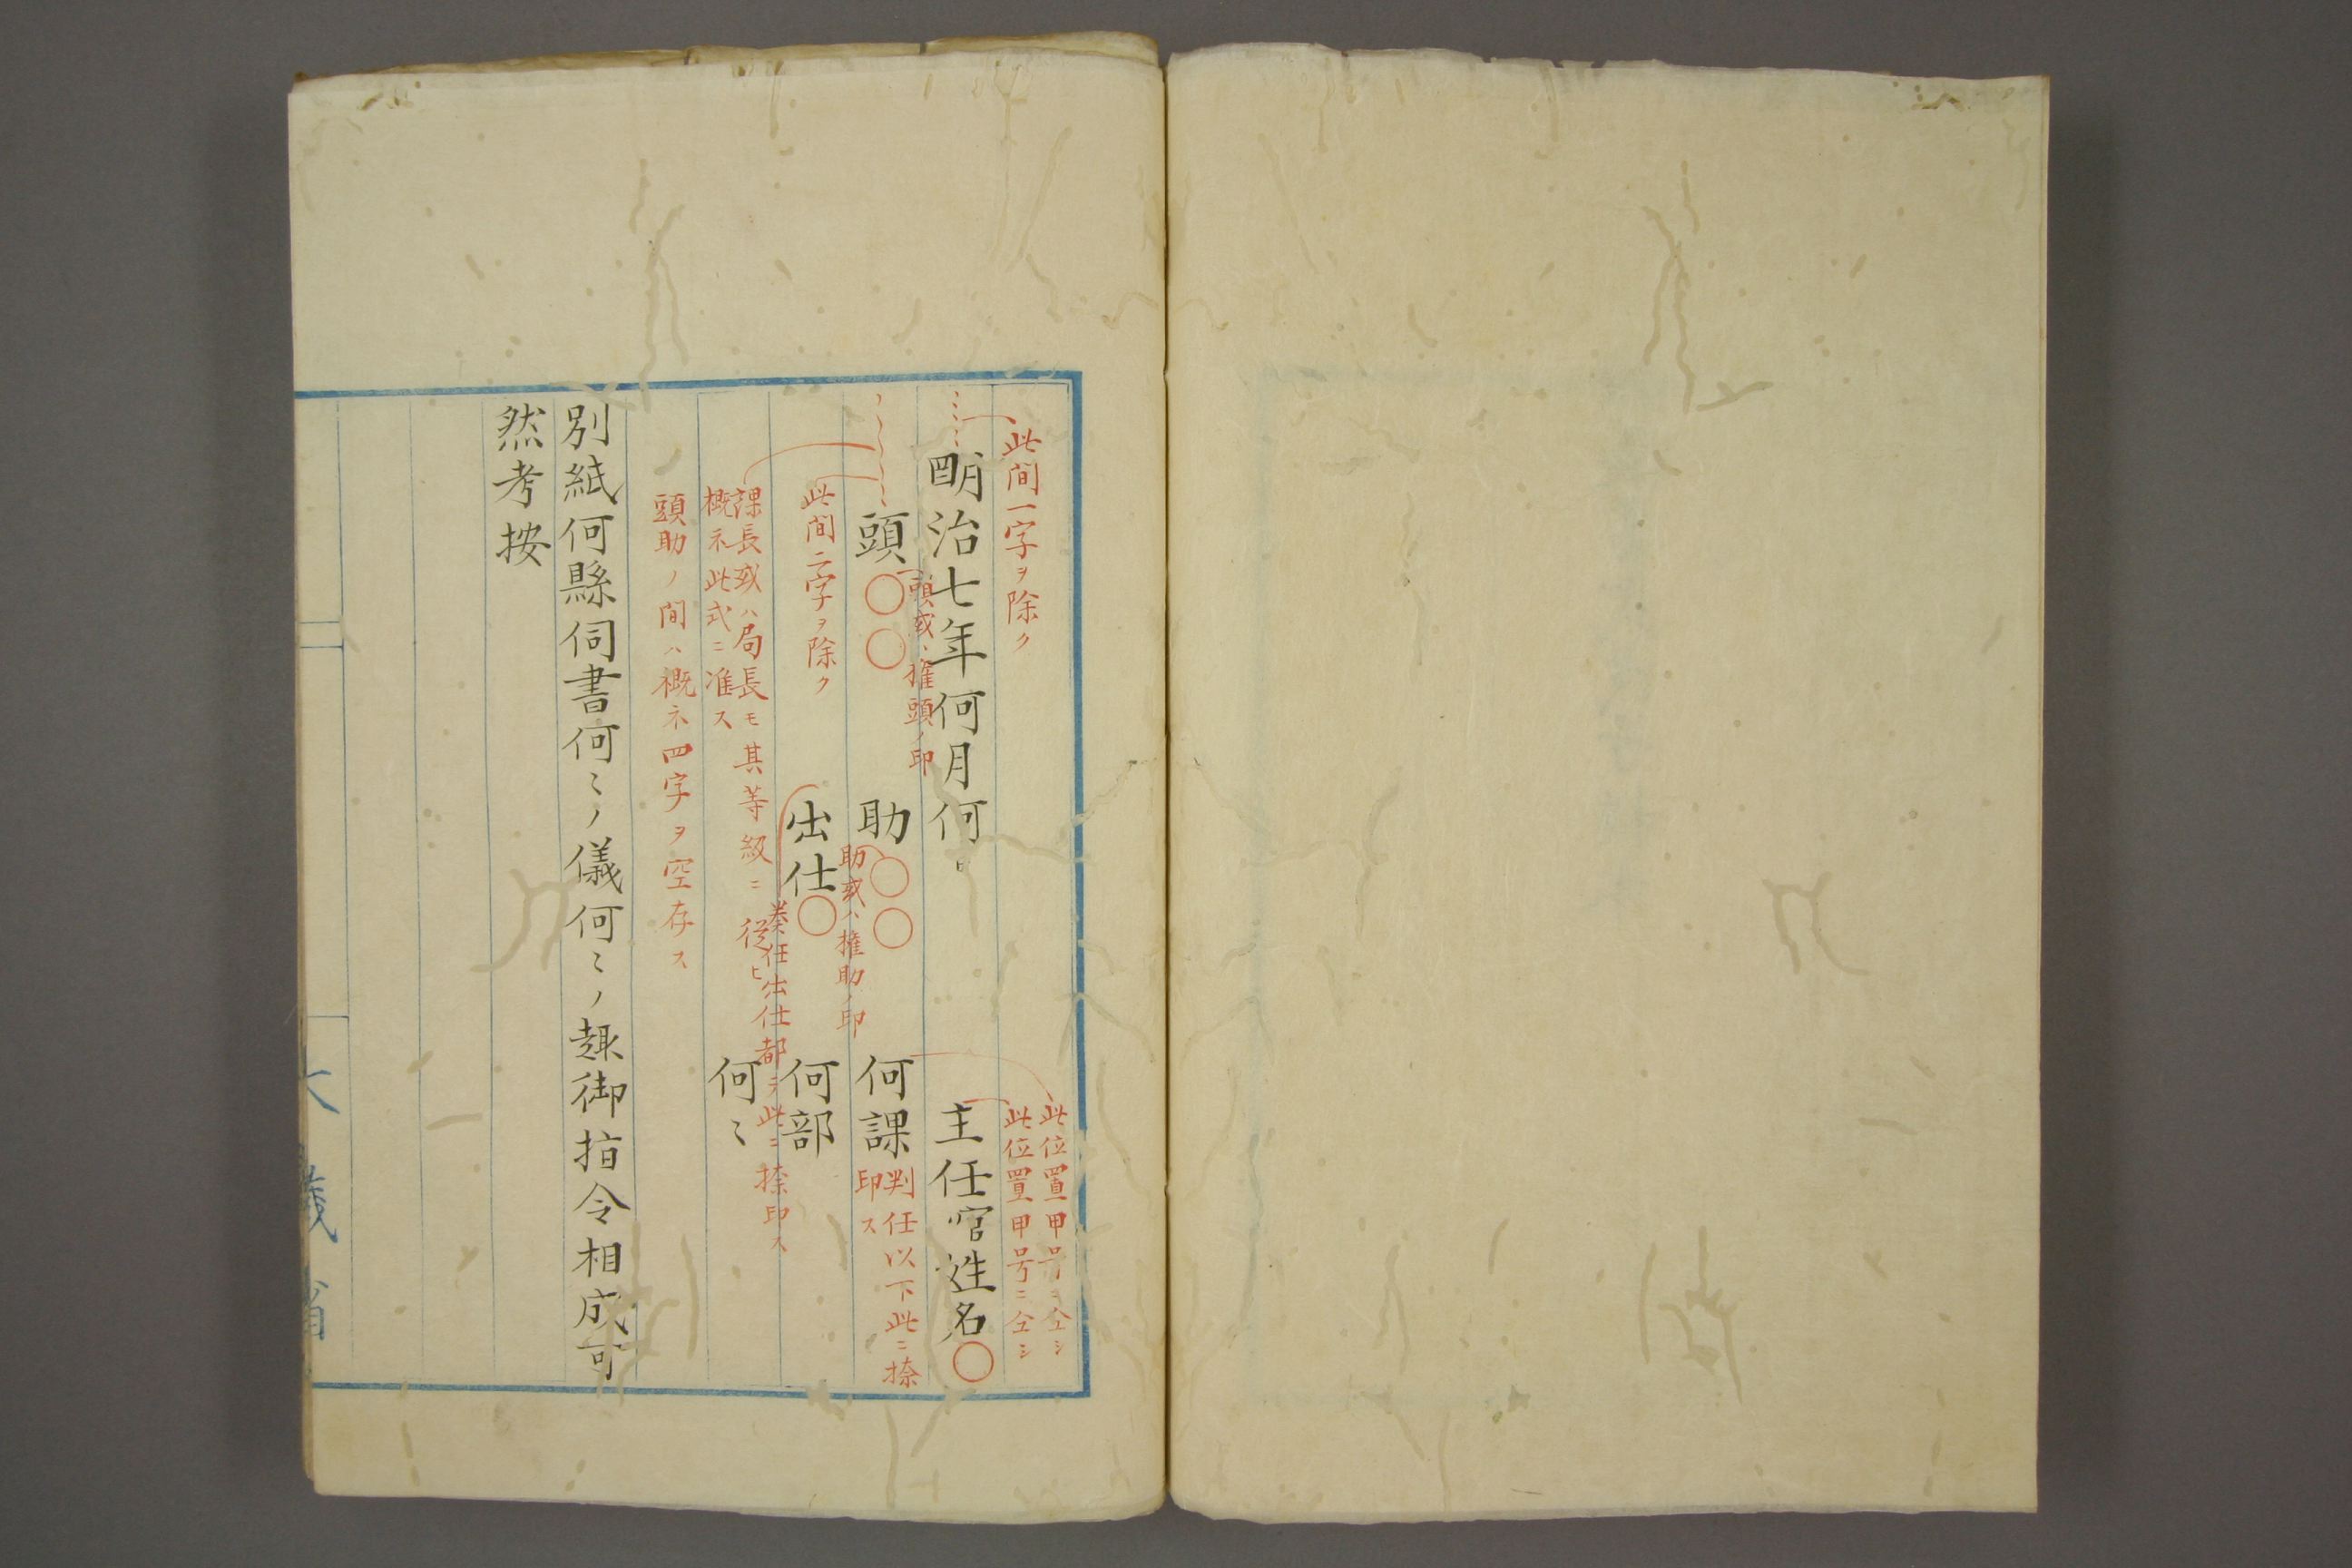 此位置甲号ニ仝シ
此間一字ヲ除ク
此位置甲号ニ仝シ
明治七年何月何日
主任官姓名〇
頭〇〇
頭或ハ権頭ノ印
助〇〇
助或ハ権助ノ印
何課
判任以下此ニ捺
印ス
此間二字ヲ除ク
出仕〇
奏任出仕都テ此ニ捺印ス
何部
課長或ハ局長モ其等級ニ従ヒ
概ネ此式ニ准ス
何〻
頭助ノ間ハ概ネ四字ヲ空存ス
別紙何縣伺書何〻ノ儀何〻ノ趣御指令相成可
然考按
大蔵省